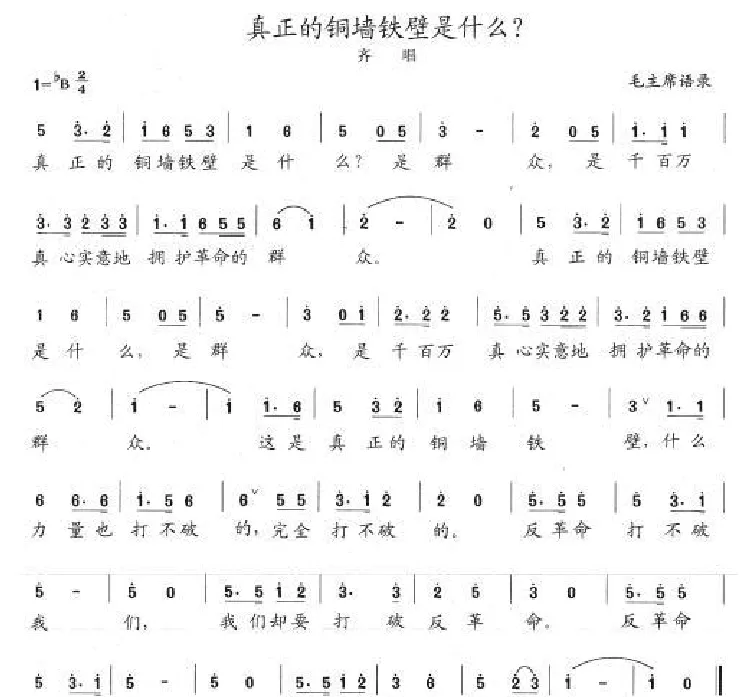 真正的铜墙铁壁是什么?
齐 唱
1=♭B 2/4 毛主席语录
5 3· 2 | 1 6 5 3 | 1 6 | 5 0 5 | 3 - | 2 0 5 | 1· 1 1
真 正 的 铜 墙 铁 壁 是 什 么? 是 群 众, 是 千 百 万
3· 3 2 3 3 | 1· 1 6 5 5 | 6 1 | 2 - | 2 0 | 5 3· 2 | 1 6 5 3
真 心 实 意 地 拥 护 革 命 的 群 众。 真 正 的 铜 墙 铁 壁
1 6 | 5 0 5 | 5 - | 3 0 1 | 2· 2 2 | 5· 5 3 2 2 | 3· 2 1 6 6
是 什 么, 是 群 众, 是 千 百 万 真 心 实 意 地 拥 护 革 命 的
5 2 | 1 - | 1 1· 6 | 5 3 2 | 1 6 | 5 - | 3 ∨ 1· 1
群 众。 这 是 真 正 的 铜 墙 铁 壁, 什 么
6 6· 6 | 1· 5 6 | 6 ∨ 5 5 | 3· 1 2 | 2 0 | 5· 5 5 | 5 3· 1
力 量 也 打 不 破 的, 完 全 打 不 破 的。 反 革 命 打 不 破
5 - | 5 0 | 5· 5 1 2 | 3· 3 | 2 5 | 3 0 | 5· 5 5
我 们, 我 们 却 要 打 破 反 革 命。 反 革 命
5 3· 1 | 5 - | 5 0 | 5· 5 1 2 | 3 6 | 5 2 3 | 1 - | 1 0